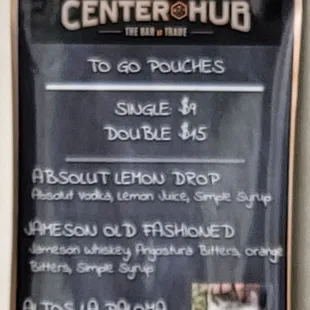 CENTER HUB
THE BAR at TRADE
TO GO POUCHES
SINGLE: $9
DOUBLE $15
ABSOLUT LEMON DROP
Absolut Vodka, Lemon Juice, Simple Syrup
JAMESON OLD FASHIONED
Jameson Whiskey, Angostura Bitters, orange
Bitters, Simple Syrup
ALTOS LA PALOMA